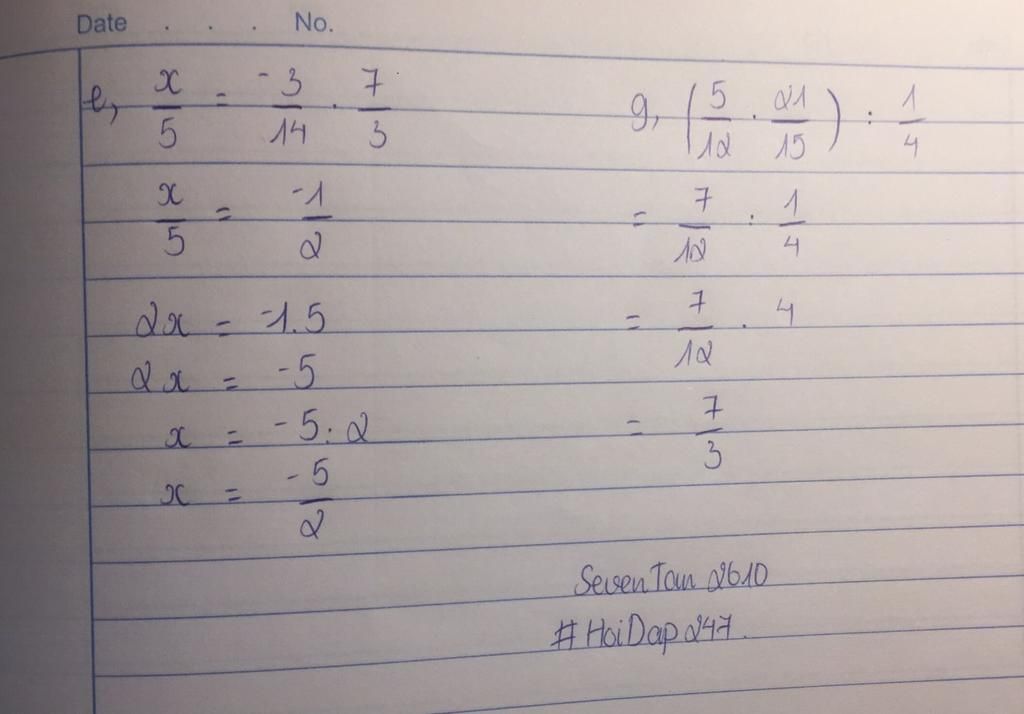 Date . . . No.
e, x/5 = -3/14 . 7/3
x/5 = -1/2
2x = -1.5
2x = -5
x = -5:2
x = -5/2
g, (5/12 . 21/15) : 1/4
= 7/12 : 1/4
= 7/12 . 4
= 7/3
SevenTan 2610
#HoiDap247.